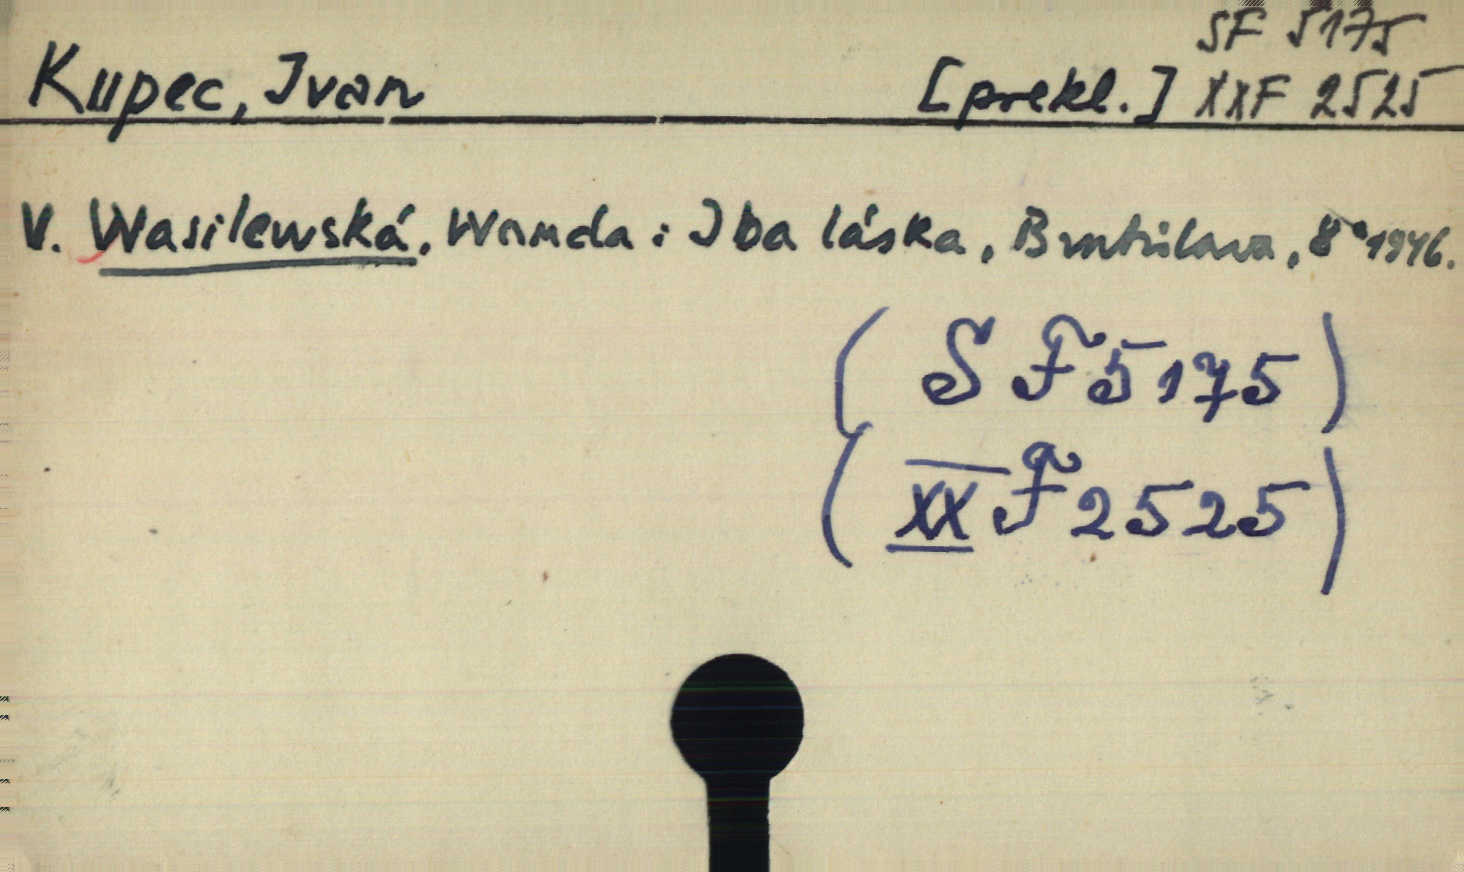 SF 5175
Kupec, Ivan [prekl.] XXF 2525
V. Wasilewská, Wanda: Iba láska, Bratislava, 8° 1946.
(SF 5175)
(XX F 2525)